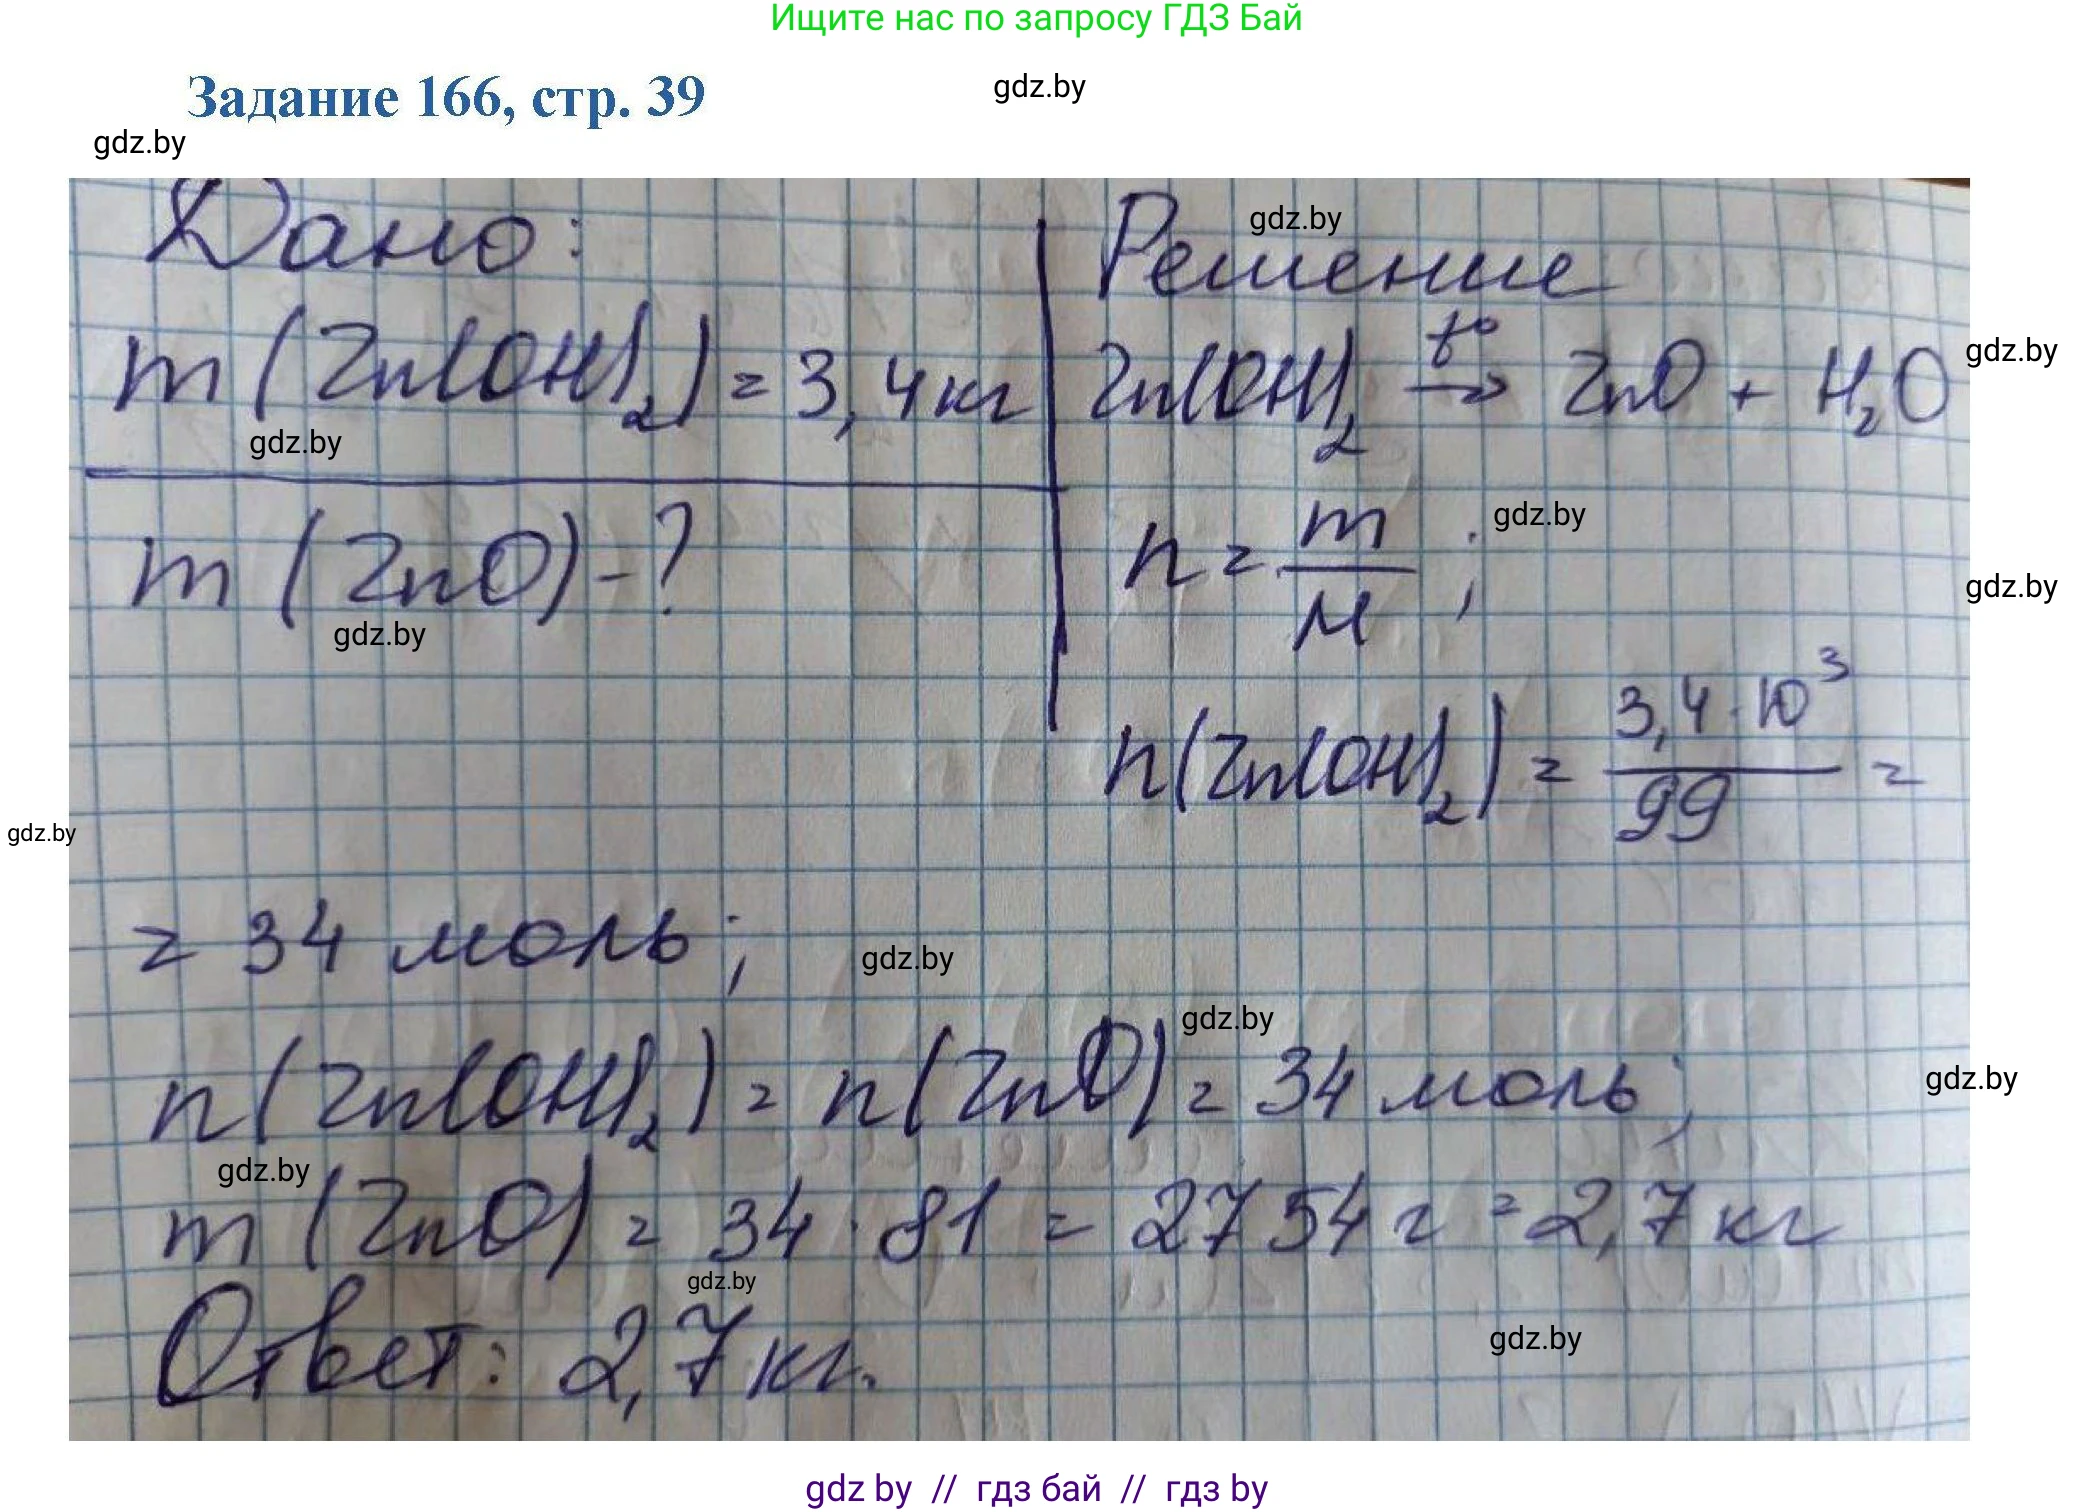 Ищите нас по запросу ГДЗ Бай
Задание 166, стр. 39
gdz.by
gdz.by
Дано:
m(Zn(OH)₂) = 3,4 кг
gdz.by
m(ZnO) - ?
gdz.by
Решение
gdz.by
Zn(OH)₂ t° → ZnO + H₂O
gdz.by
n = m/M ;
gdz.by
gdz.by
n(Zn(OH)₂) = 3,4 · 10³/99 =
gdz.by
= 34 моль;
gdz.by
gdz.by
n(Zn(OH)₂) = n(ZnO) = 34 моль;
gdz.by
gdz.by
m(ZnO) = 34 · 81 = 2754 г = 2,7 кг
gdz.by
Ответ: 2,7 кг.
gdz.by
gdz by // гдз бай // гдз by